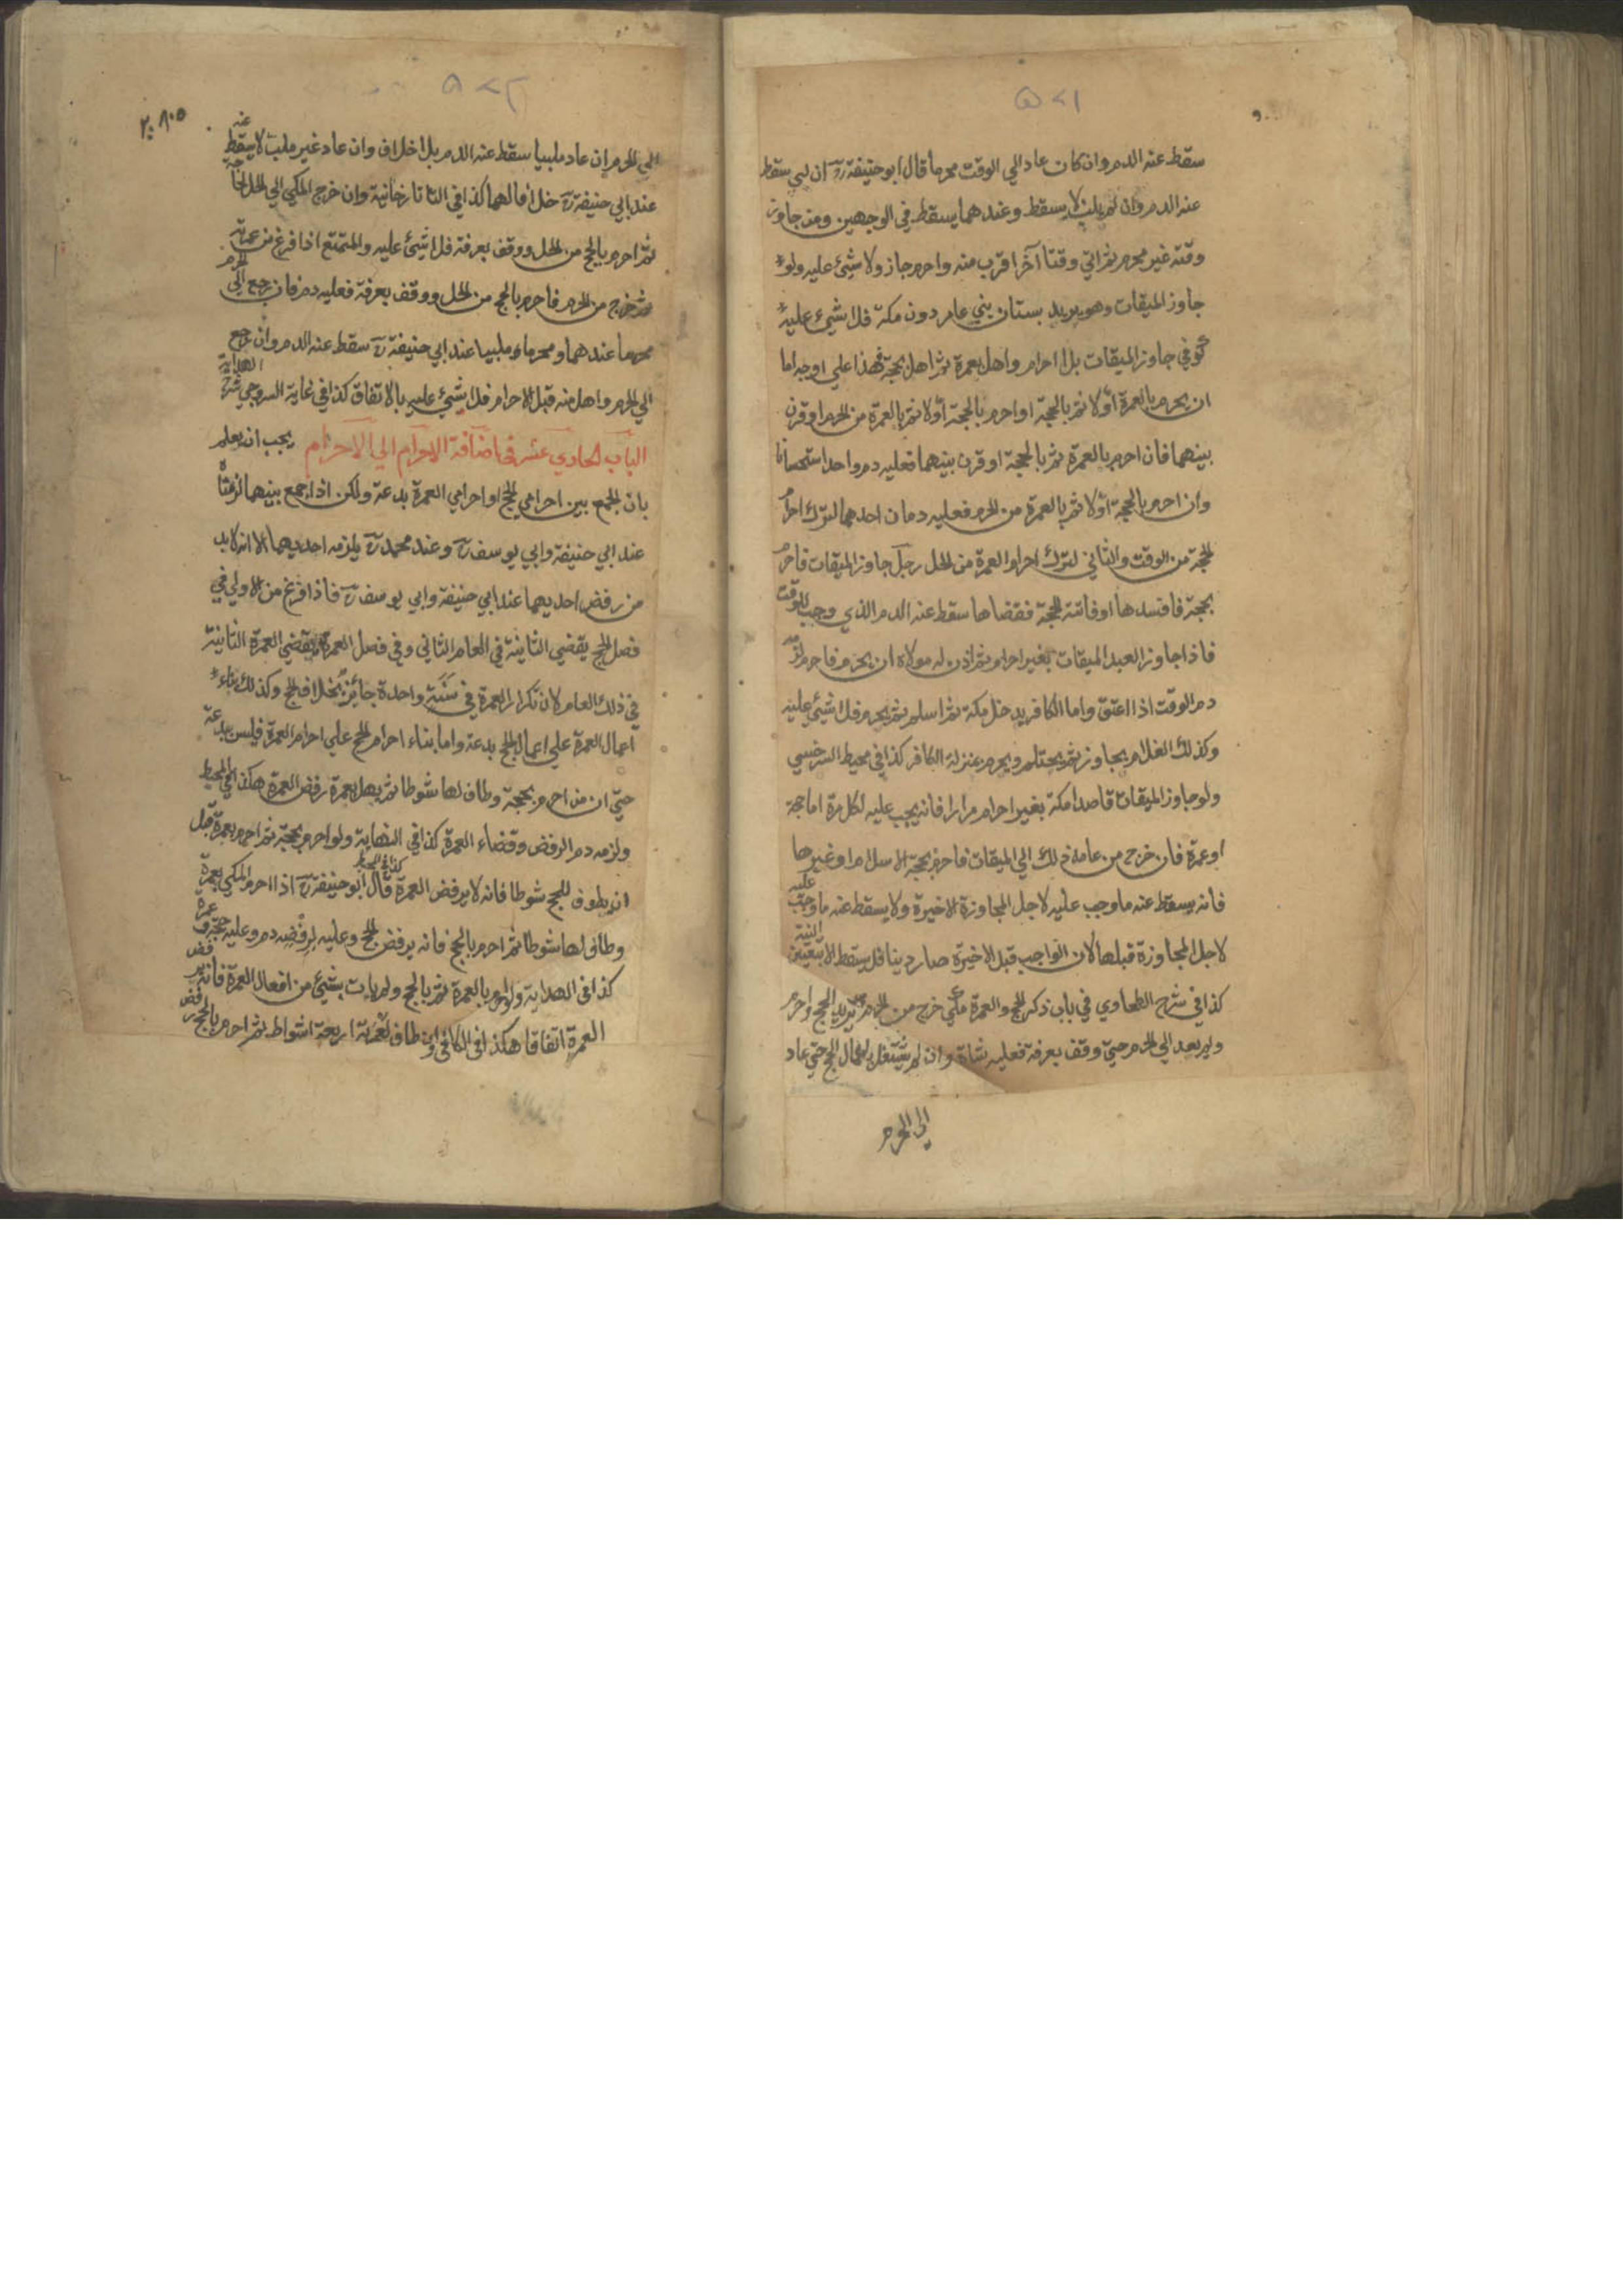 ٥٧١
سقط عنه الدم وان كان عاد الي الوقت محرما قال ابو حنيفة رح ان لبي سقط
عنه الدم وان لم يلب لا يسقط وعندهما يسقط في الوجهين ومن جاوز
وقته غير محرم ثم اتي وقتا آخر اقرب منه واحرم جاز ولا شيئ عليه ولو
جاوز الميقات وهو يريد بستان بني عامر دون مكة فلا شيئ عليه
كوفي جاوز الميقات بلا احرام واهل بعمرة ثم اهل بحجة فهذا علي اوجه اما
ان يحرم بالعمرة أولا ثم بالحجة او احرم بالحجة أولا ثم بالعمرة من الحرم او قرن
بينهما فان احرم بالعمرة ثم بالحجة او قرن بينهما فعليه دم واحد استحسانا
وان احرم بالحجة أولا ثم بالعمرة من الحرم فعليه دمان احدهما لترك احرام
الحجة من الوقت والثاني لترك احرام العمرة من الحل رجل جاوز الميقات فاحرم
بحجة فافسدها او فاتته الحجة فقضاها سقط عنه الدم الذي وجب للوقت
فاذا جاوز العبد الميقات بغير احرام ثم اذن له مولاه ان يحرم فاحرم لزمه
دم الوقت اذا اعتق واما الكافر يدخل مكة ثم اسلم ثم يحرم فلا شيئ عليه
وكذلك الغلام يجاوز ثم يحتلم ويحرم بمنزلة الكافر كذا في محيط السرخسي
ولو جاوز الميقات قاصدا مكة بغير احرام مرارا فانه يجب عليه لكل مرة اما حجة
او عمرة فان خرج من عامه ذلك الي الميقات فاحرم بحجة الاسلام او غيرها
فانه يسقط عنه ما وجب عليه لاجل المجاوزة الاخيرة ولا يسقط عنه ما وجب عليه
لاجل المجاوزة قبلها لان الواجب قبل الاخيرة صار دينا فلا يسقط الا بتعيين النية
كذا في شرح الطحاوي في باب ذكر الحج والعمرة مكي خرج من الحرم يريد الحج واحرم
ولم يعد الي الحرم حتي وقف بعرفة فعليه شاة وان لم يشتغل باعمال الحج حتي عاد
الى الحرم
٥٧٢
الي الحرم ان عاد ملبيا سقط عنه الدم بلا خلاف وان عاد غير ملب لا يسقط عنه
عند ابي حنيفة رح خلافا لهما كذا في التاتارخانية وان خرج المكي الي الحل لحاجة
ثم احرم بالحج من الحل ووقف بعرفة فلا شيئ عليه والمتمتع اذا فرغ من عمرته
ثم خرج من الحرم فاحرم بالحج من الحل ووقف بعرفة فعليه دم فان رجع الي الحرم
محرما عندهما ومحرما وملبيا عند ابي حنيفة رح سقط عنه الدم وان رجع
الي الحرم واهل منه قبل الاحرام فلا شيئ عليه بالاتفاق كذا في غاية السروجي شرح الهداية
الباب الحادي عشر في اضافة الاحرام الي الاحرام يجب ان يعلم
بان الجمع بين احرامي الحج او احرامي العمرة بدعة ولكن اذا جمع بينهما لزمتاه
عند ابي حنيفة وابي يوسف رح وعند محمد رح يلزمه احديهما الا انه لا بد
من رفض احديهما عند ابي حنيفة وابي يوسف رح فاذا فرغ من الاولي في
فصل الحج يقضي الثانية في العام الثاني وفي فصل العمرة يقضي العمرة الثانية
في ذلك العام لان تكرار العمرة في سنة واحدة جائز بخلاف الحج وكذلك بناء
اعمال العمرة علي اعمال الحج بدعة واما بناء احرام الحج علي احرام العمرة فليس ببدعة
حتي ان من احرم بحجة وطاف لها شوطا ثم يهل بعمرة رفض العمرة هكذا في المحيط
ولزمه دم الرفض وقضاء العمرة كذا في النهاية ولو احرم بحجة ثم احرم بعمرة قبل
ان يطوف للحج شوطا فانه لا يرفض العمرة كذا في المحيط قال ابو حنيفة رح اذا احرم المكي بعمرة
وطاف لها شوطا ثم احرم بالحج فانه يرفض الحج وعليه لرفضه دم وعليه حجة وعمرة
كذا في الهداية ولو احرم بالعمرة ثم بالحج ولم يات بشيئ من افعال العمرة فانه يرفض
العمرة اتفاقا هكذا في الكافي وان طاف للعمرة اربعة اشواط ثم احرم بالحج رفض